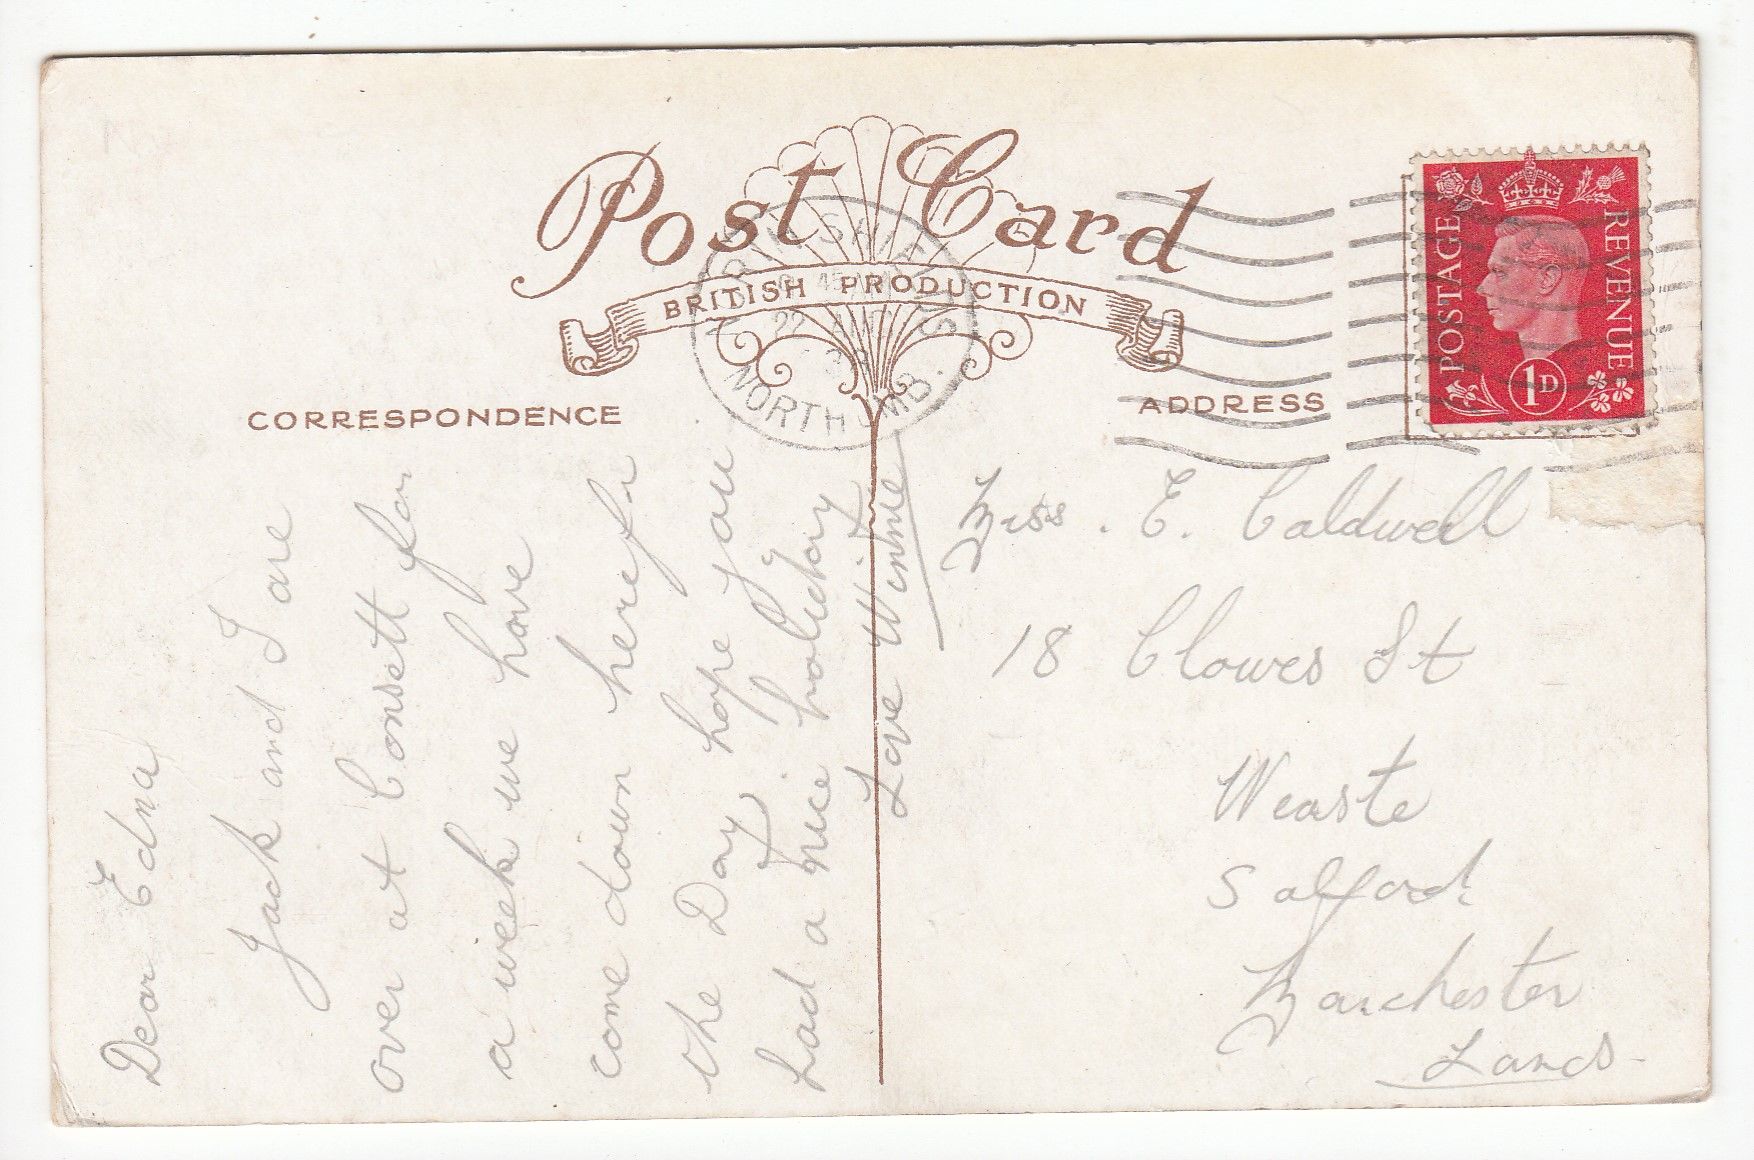 Post Card
BRITISH PRODUCTION
CORRESPONDENCE
ADDRESS
NORTH SHIELDS
45
22 AUG
39
NORTHUMB.
POSTAGE
REVENUE
1D
Dear Edna
Jack and I are
over at Consett for
a week we have
come down here for
the Day hope you
had a nice holiday
Love Winnie
Miss. E. Caldwell
18 Clowes St
Weaste
Salford
Manchester
Lancs